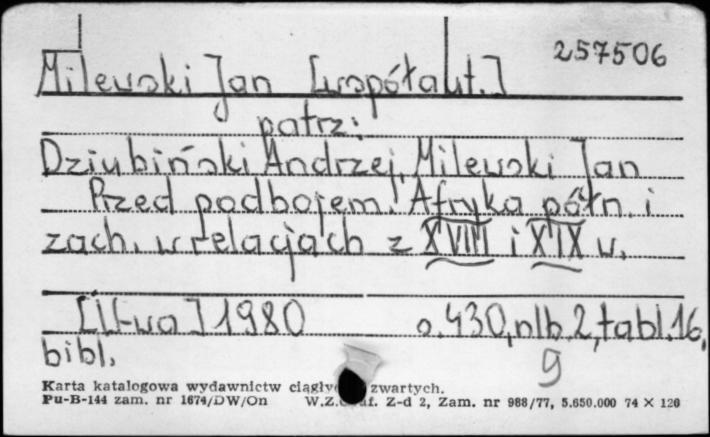 257506
Milewski Jan [współaut.]
patrz:
Dziubiński Andrzej, Milewski Jan
Przed podbojem. Afryka półn. i
zach. w relacjach z XVIII i XIX w.
[W-wa] 1980 s. 430, nlb. 2, tabl. 16,
bibl. 9
Karta katalogowa wydawnictw ciągłyc zwartych.
Pu-B-144 zam. nr 1674/DW/On W.Z. f. Z-d 2, Zam. nr 988/77, 5.650.000 74 × 126